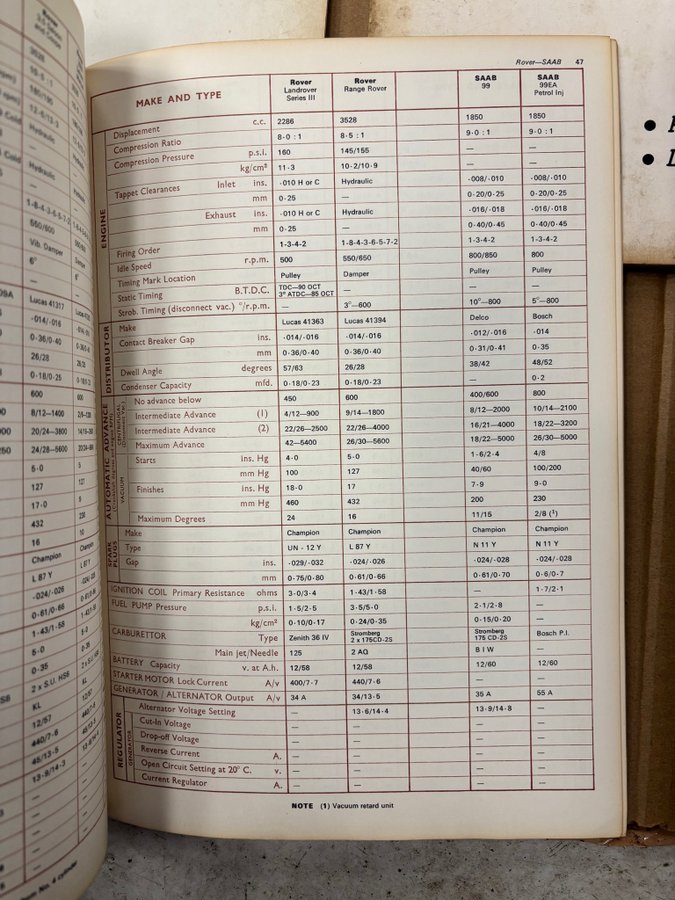 Rover
3528
10·5 : 1
Hydraulic
—
Hydraulic
—
1-8-4-3-6-5-7-2
550/600
Vib. Damper
6°
—
Lucas 41317
·014/·016
0·36/0·40
26/28
0·18/0·25
600
8/12—1400
20/24—3800
24/28—5600
5·0
127
17·0
432
16
Champion
L 87 Y
·024/·026
0·61/0·66
1·43/1·58
5·0
0·35
2 x S.U. HS6
KL
12/57
440/7·6
45/13·5
13·9/14·3
—
No. 4 cylinder
Rover—SAAB 47
MAKE AND TYPE Rover Landrover Series III Rover Range Rover SAAB 99 SAAB 99EA Petrol Inj
ENGINE
Displacement c.c. 2286 3528 1850 1850
Compression Ratio 8·0 : 1 8·5 : 1 9·0 : 1 9·0 : 1
Compression Pressure p.s.i. 160 145/155 — —
kg/cm² 11·3 10·2/10·9 — —
Tappet Clearances Inlet ins. ·010 H or C Hydraulic ·008/·010 ·008/·010
mm 0·25 — 0·20/0·25 0·20/0·25
Exhaust ins. ·010 H or C Hydraulic ·016/·018 ·016/·018
mm 0·25 — 0·40/0·45 0·40/0·45
Firing Order 1-3-4-2 1-8-4-3-6-5-7-2 1-3-4-2 1-3-4-2
Idle Speed r.p.m. 500 550/650 800/850 800
Timing Mark Location Pulley Damper Pulley Pulley
Static Timing B.T.D.C. TDC—90 OCT 3° ATDC—85 OCT — — —
Strob. Timing (disconnect vac.) °/r.p.m. — 3°—600 10°—800 5°—800
DISTRIBUTOR
Make Lucas 41363 Lucas 41394 Delco Bosch
Contact Breaker Gap ins. ·014/·016 ·014/·016 ·012/·016 ·014
mm 0·36/0·40 0·36/0·40 0·31/0·41 0·35
Dwell Angle degrees 57/63 26/28 38/42 48/52
Condenser Capacity mfd. 0·18/0·23 0·18/0·23 — 0·2
AUTOMATIC ADVANCE
CENTRIFUGAL
No advance below 450 600 400/600 800
Intermediate Advance (1) 4/12—900 9/14—1800 8/12—2000 10/14—2100
Intermediate Advance (2) 22/26—2500 22/26—4000 16/21—4000 18/22—3200
Maximum Advance 42—5400 26/30—5600 18/22—5000 26/30—5000
VACUUM
Starts ins. Hg 4·0 5·0 1·6/2·4 4/8
mm Hg 100 127 40/60 100/200
Finishes ins. Hg 18·0 17 7·9 9·0
mm Hg 460 432 200 230
Maximum Degrees 24 16 11/15 2/8 (¹)
SPARK PLUGS
Make Champion Champion Champion Champion
Type UN - 12 Y L 87 Y N 11 Y N 11 Y
Gap ins. ·029/·032 ·024/·026 ·024/·028 ·024/·028
mm 0·75/0·80 0·61/0·66 0·61/0·70 0·6/0·7
IGNITION COIL Primary Resistance ohms 3·0/3·4 1·43/1·58 — 1·7/2·1
FUEL PUMP Pressure p.s.i. 1·5/2·5 3·5/5·0 2·1/2·8 —
kg/cm² 0·10/0·17 0·24/0·35 0·15/0·20 —
CARBURETTOR Type Zenith 36 IV Stromberg 2 x 175CD-2S Stromberg 175 CD-2S Bosch P.I.
Main jet/Needle 125 2 AQ B I W —
BATTERY Capacity v. at A.h. 12/58 12/58 12/60 12/60
STARTER MOTOR Lock Current A/v 400/7·7 440/7·6 — —
GENERATOR / ALTERNATOR Output A/v 34 A 34/13·5 35 A 55 A
REGULATOR
Alternator Voltage Setting — 13·6/14·4 13·9/14·8 —
GENERATOR
Cut-In Voltage — — — —
Drop-off Voltage — — — —
Reverse Current A. — — — —
Open Circuit Setting at 20° C. v. — — — —
Current Regulator A. — — — —
NOTE (1) Vacuum retard unit